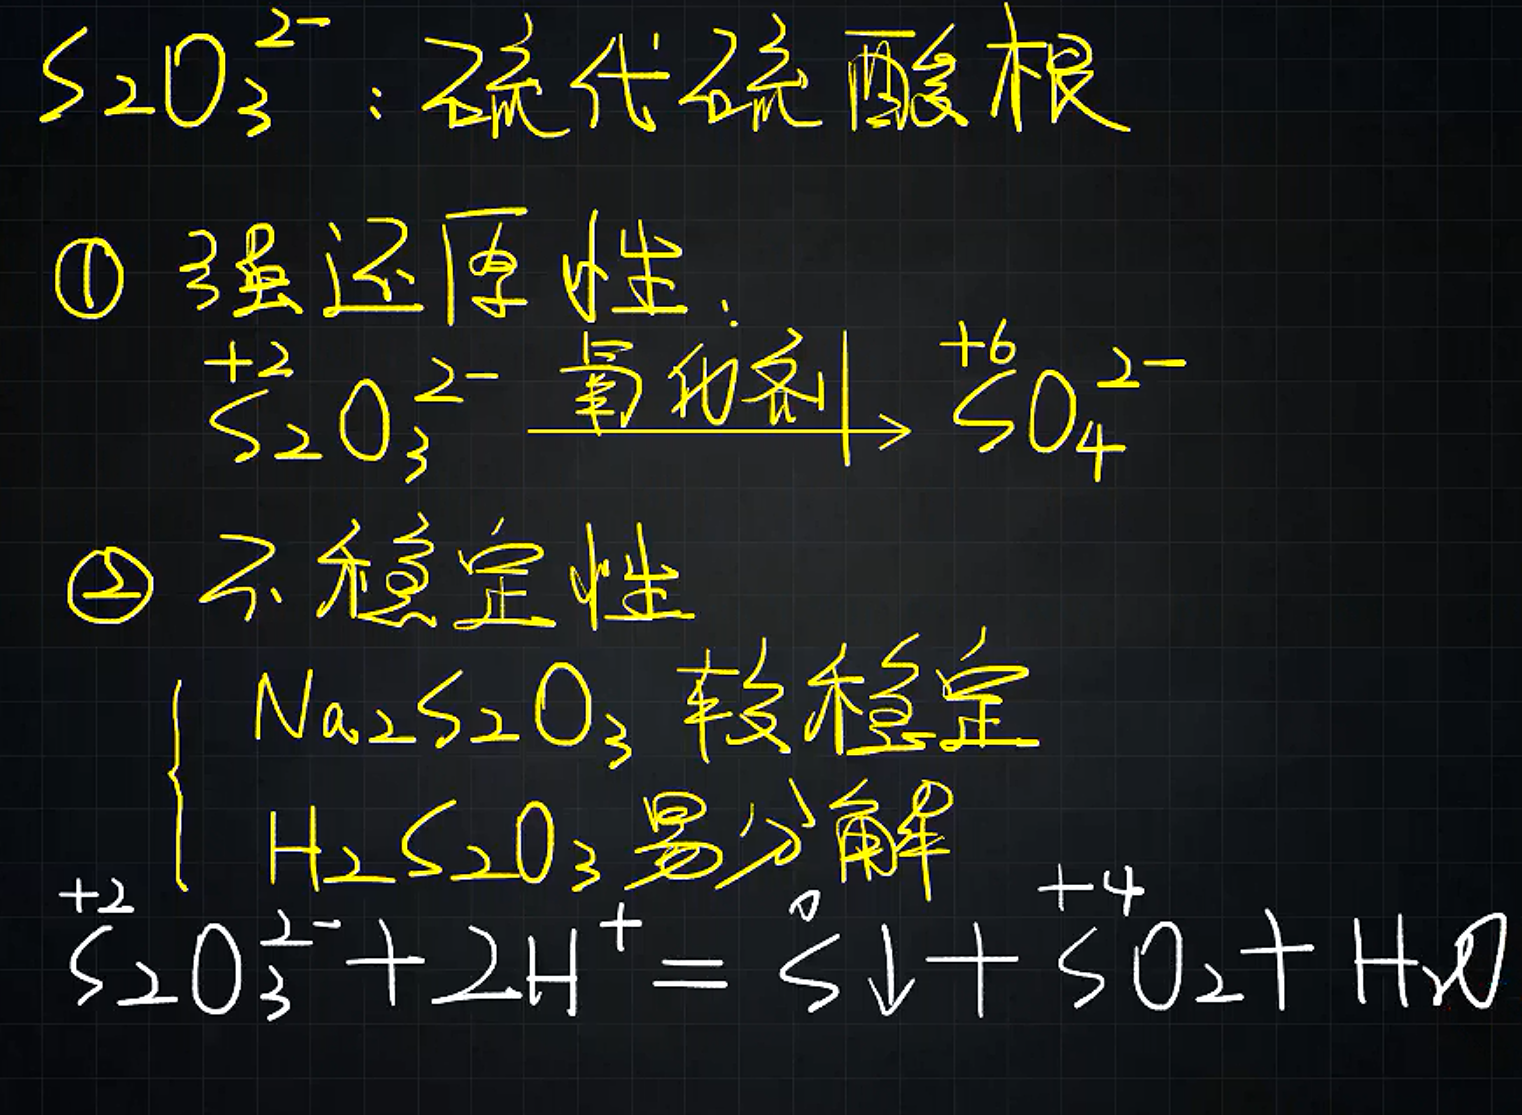 S₂O₃²⁻：硫代硫酸根
① 强还原性：
+2 +6
S₂O₃²⁻ 氧化剂→ SO₄²⁻
② 不稳定性
{ Na₂S₂O₃ 较稳定
H₂S₂O₃ 易分解
+2 0 +4
S₂O₃²⁻ + 2H⁺ = S↓ + SO₂ + H₂O